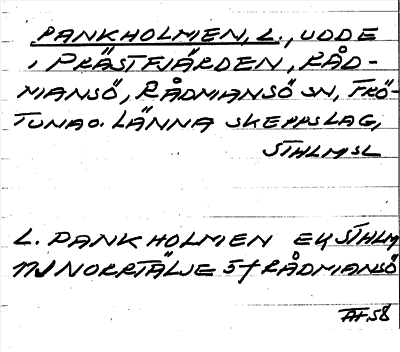 PANKHOLMEN, L., UDDE
I PRÄSTFJÄRDEN, RÅD-
MANSÖ, RÅDMANSÖ SN, FRÖ-
TUNA O. LÄNNA SKEPPSLAG,
STHLMSL
L. PANKHOLMEN EK STHLM
NORRTÄLJE 5 f RÅDMANSÖ
AF 58